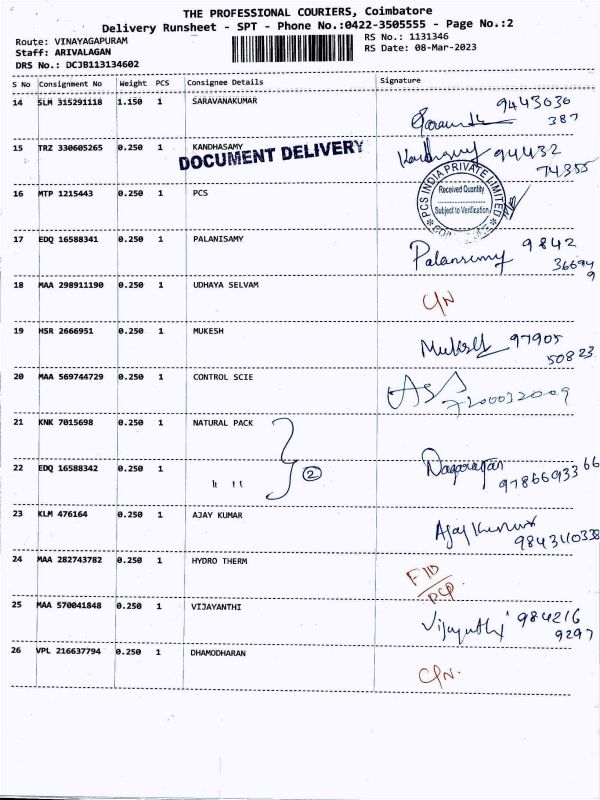 THE PROFESSIONAL COURIERS, Coimbatore
Delivery Runsheet - SPT - Phone No.:0422-3505555 - Page No.:2
Route: VINAYAGAPURAM RS No.: 1131346
Staff: ARIVALAGAN RS Date: 08-Mar-2023
DRS No.: DCJB113134602
S No Consignment No Weight PCS Consignee Details Signature
14 SLM 315291118 1.150 1 SARAVANAKUMAR 9443030
387
15 TRZ 330605265 0.250 1 KANDHASAMY 94432
DOCUMENT DELIVERY 74355
PCS INDIA PRIVATE LIMITED
Received Quantity
Subject to Verification
16 MTP 1215443 0.250 1 PCS
17 EDQ 16588341 0.250 1 PALANISAMY Palanisamy 9842
366949
18 MAA 298911190 0.250 1 UDHAYA SELVAM C/N
19 HSR 2666951 0.250 1 MUKESH Mukesh 97905
50823
20 MAA 569744729 0.250 1 CONTROL SCIE
7200032009
21 KNK 7015698 0.250 1 NATURAL PACK
22 EDQ 16588342 0.250 1 " " 2 Nagarajan
9786693366
23 KLM 476164 0.250 1 AJAY KUMAR Ajay Kumar
9843110338
24 MAA 282743782 0.250 1 HYDRO THERM
25 MAA 570041848 0.250 1 VIJAYANTHI Vijayanthi 984216
9297
26 VPL 216637794 0.250 1 DHAMODHARAN C/N.